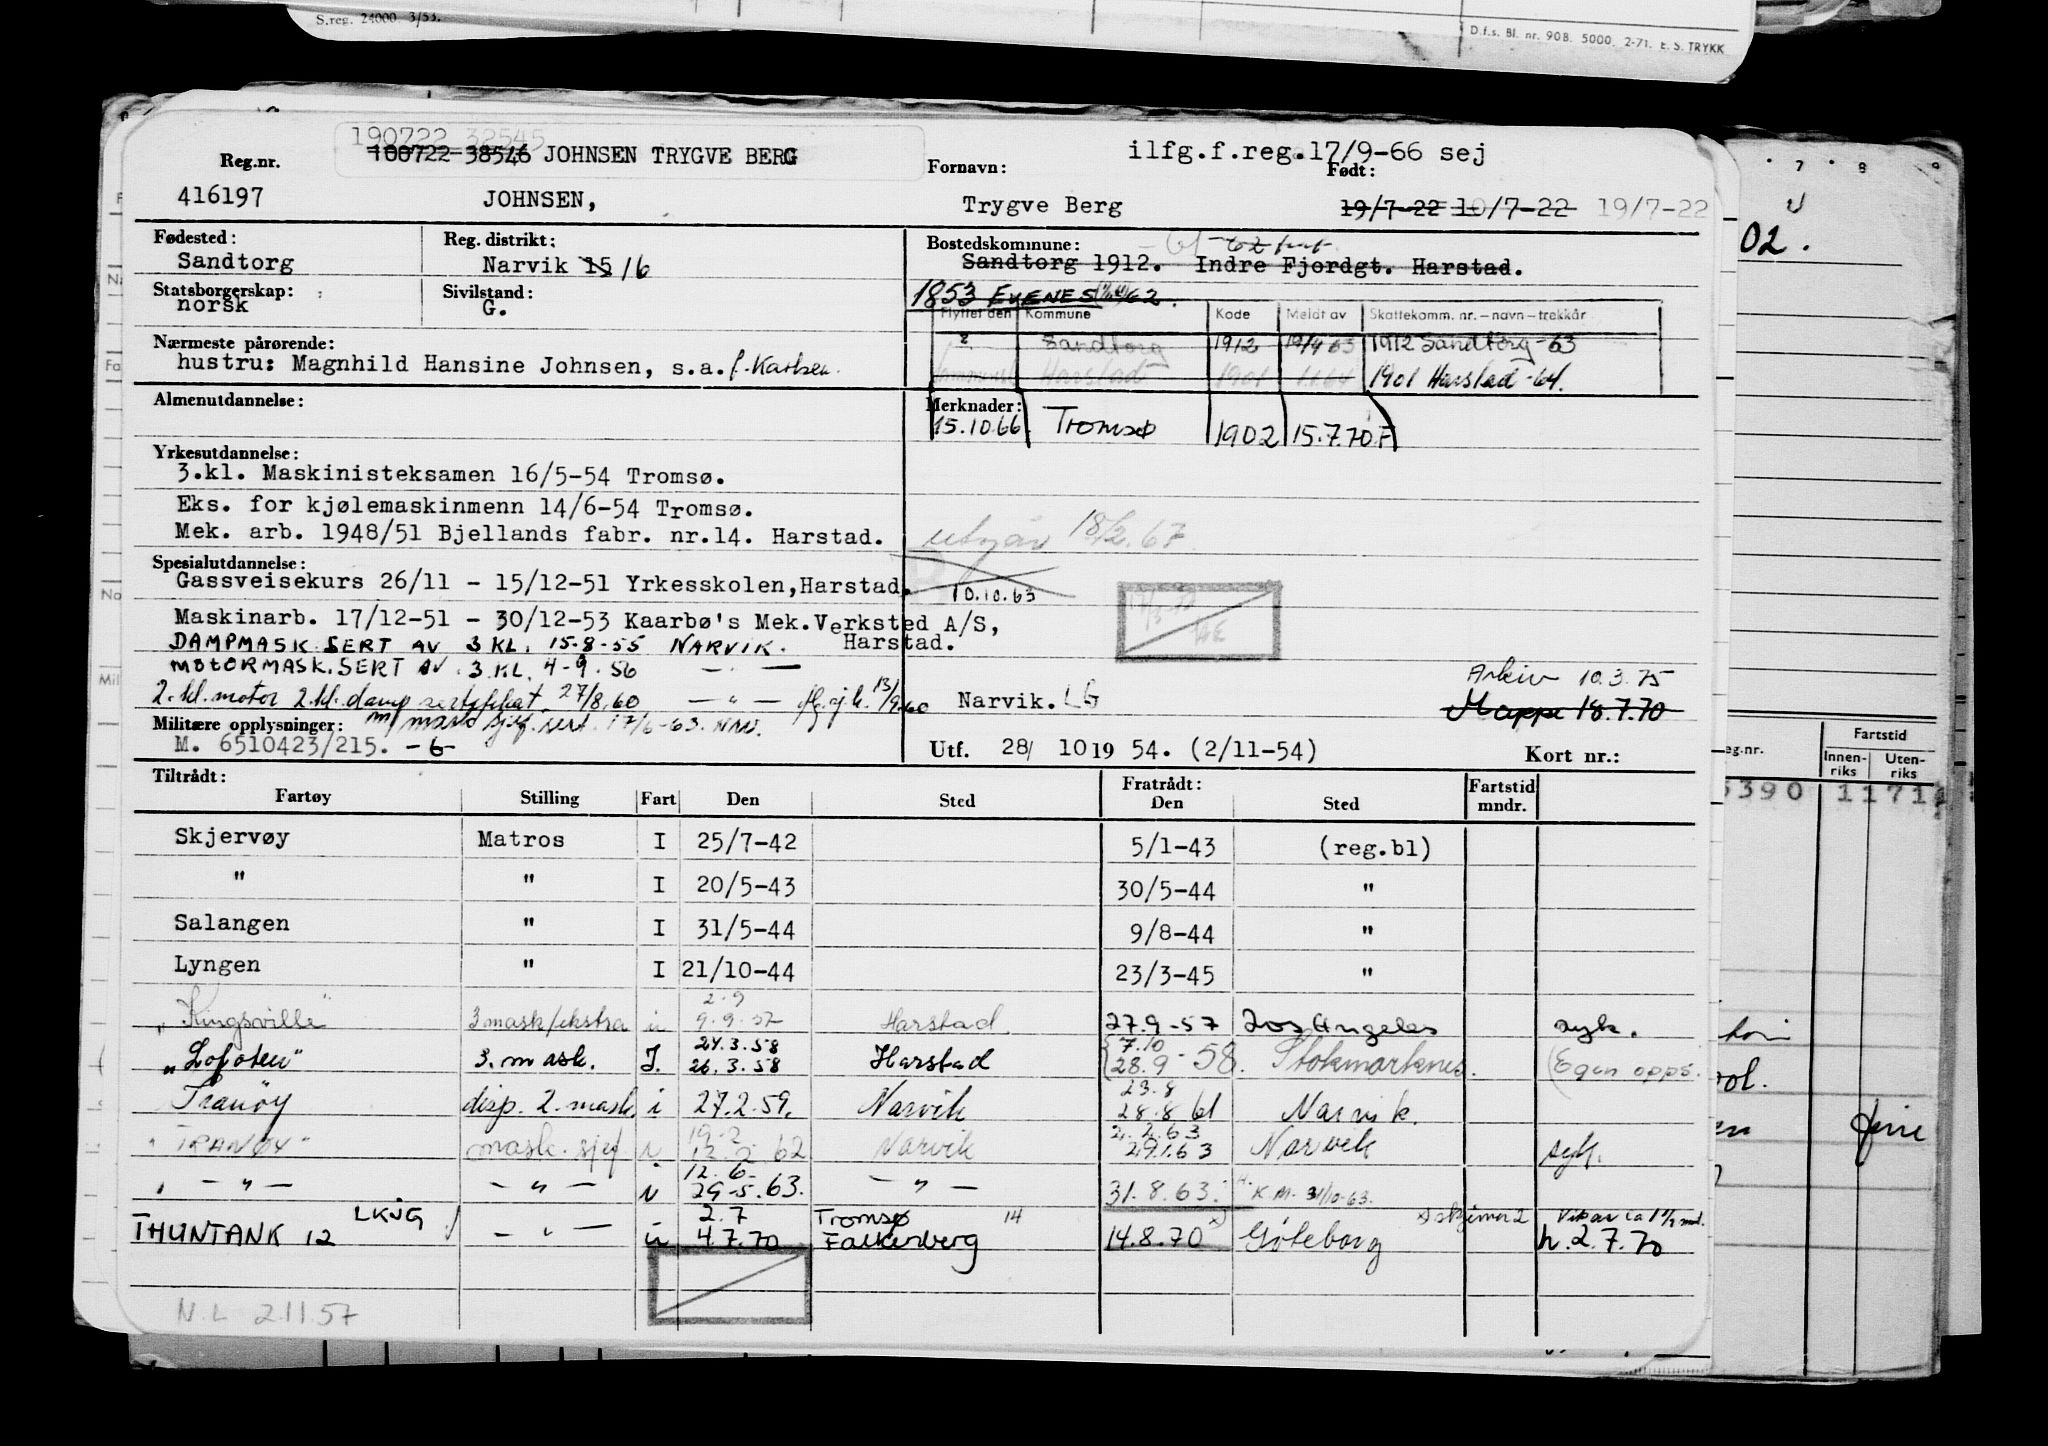 S.reg. 24000 3/53.
D.f.s. Bl. nr. 90B. 5000. 2-71. E. S. TRYKK
190722 32545
100722 38546 JOHNSEN TRYGVE BERG
ilfg.f.reg.17/9-66 sej
Reg.nr. Fornavn: Født:
416197 JOHNSEN, Trygve Berg 19/7-22 10/7-22 19/7-22
Fødested: Reg. distrikt: Bostedskommune:
Sandtorg Narvik 15 16 Sandtorg 1912. Indre Fjordgt. Harstad.
Statsborgerskap: Sivilstand: 1853 EVENES 62.
norsk G.
Flyttet den Kommune Kode Meldt av Skattekomm. nr. – navn – trekkår
Nærmeste pårørende: Sandtorg 1912 63 1912 Sandtorg -63
hustru: Magnhild Hansine Johnsen, s.a. f. Karlsen. Harstad 1901 1.1.64 1901 Harstad -64.
Almenutdannelse: Merknader:
15.10.66. Tromsø 1902 15.7.70 F
Yrkesutdannelse:
3.kl. Maskinisteksamen 16/5-54 Tromsø.
Eks. for kjølemaskinmenn 14/6-54 Tromsø.
Mek. arb. 1948/51 Bjellands fabr. nr.14. Harstad. utgår 18/2.67
Spesialutdannelse:
Gassveisekurs 26/11 - 15/12-51 Yrkesskolen, Harstad. 10.10.63
Maskinarb. 17/12-51 - 30/12-53 Kaarbø's Mek. Verksted A/S,
Harstad.
DAMPMASK. SERT AV 3 KL. 15-8-55 NARVIK.
MOTORMASK. SERT AV 3 KL. 4-9-56 — " —
Arkiv 10.3.75
2. kl. motor 2. kl. damp sertifikat 27/8.60 — " — 13/9.60 Narvik. LG
Mappe 18.7.70
Militære opplysninger: m/ mask sjef. sert. 17/6-63. Narv.
M. 6510423/215. -6- Utf. 28/ 10 19 54. (2/11-54) Kort nr.:
Tiltrådt: Fratrådt: Fartstid mndr.
Fartøy Stilling Fart Den Sted Den Sted
Skjervøy Matros I 25/7-42 5/1-43 (reg.bl)
" " I 20/5-43 30/5-44 "
Salangen " I 31/5-44 9/8-44 "
Lyngen " I 21/10-44 23/3-45 "
2.9
"Kingsville" 3 mask/ekstra u 9.9.57 Harstad 27.9-57 Los Angeles syk.
24.3.58 7.10
"Lofoten" 3. mask. I. 26.3.58 Harstad 28.9-58. Stokmarknes. (Egen opps.
23.8
Tranøy disp. 2. mask. i 27.2.59. Narvik 28.8 61 Narvik.
19.2 2.2.63
"TRANØY" mask. sjef i 12.2.62 Narvik 29.1.63 Narvik syk.
12.6-
" — " — — " — i 29-5.63. — " — 31.8.63. K.M. 31/10-63.
LKJG 2.7 Tromsø 14 x) skjema 2 Vikar ca 1½ md.
THUNTANK 12 — " — u 4.7.70 Falkenberg 14.8.70 x) Göteborg h. 2.7.70
N.L 2.11.57
7 8 9
02.
eg.nr. Fartstid
Innen-riks Uten-riks
5390 1171